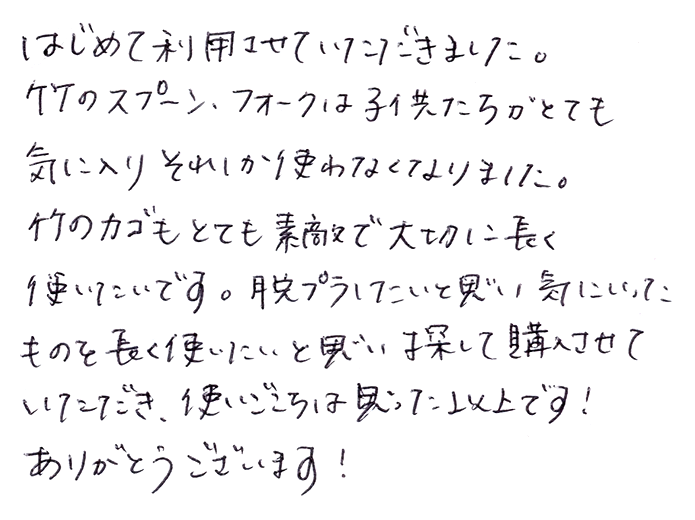 はじめて利用させていただきました。
竹のスプーン、フォークは子供たちがとても
気に入りそれしか使わなくなりました。
竹のカゴもとても素敵で大切に長く
使いたいです。脱プラしたいと思い気にいった
ものを長く使いたいと思い探して購入させて
いただき、使いごこちは思った以上です！
ありがとうございます！